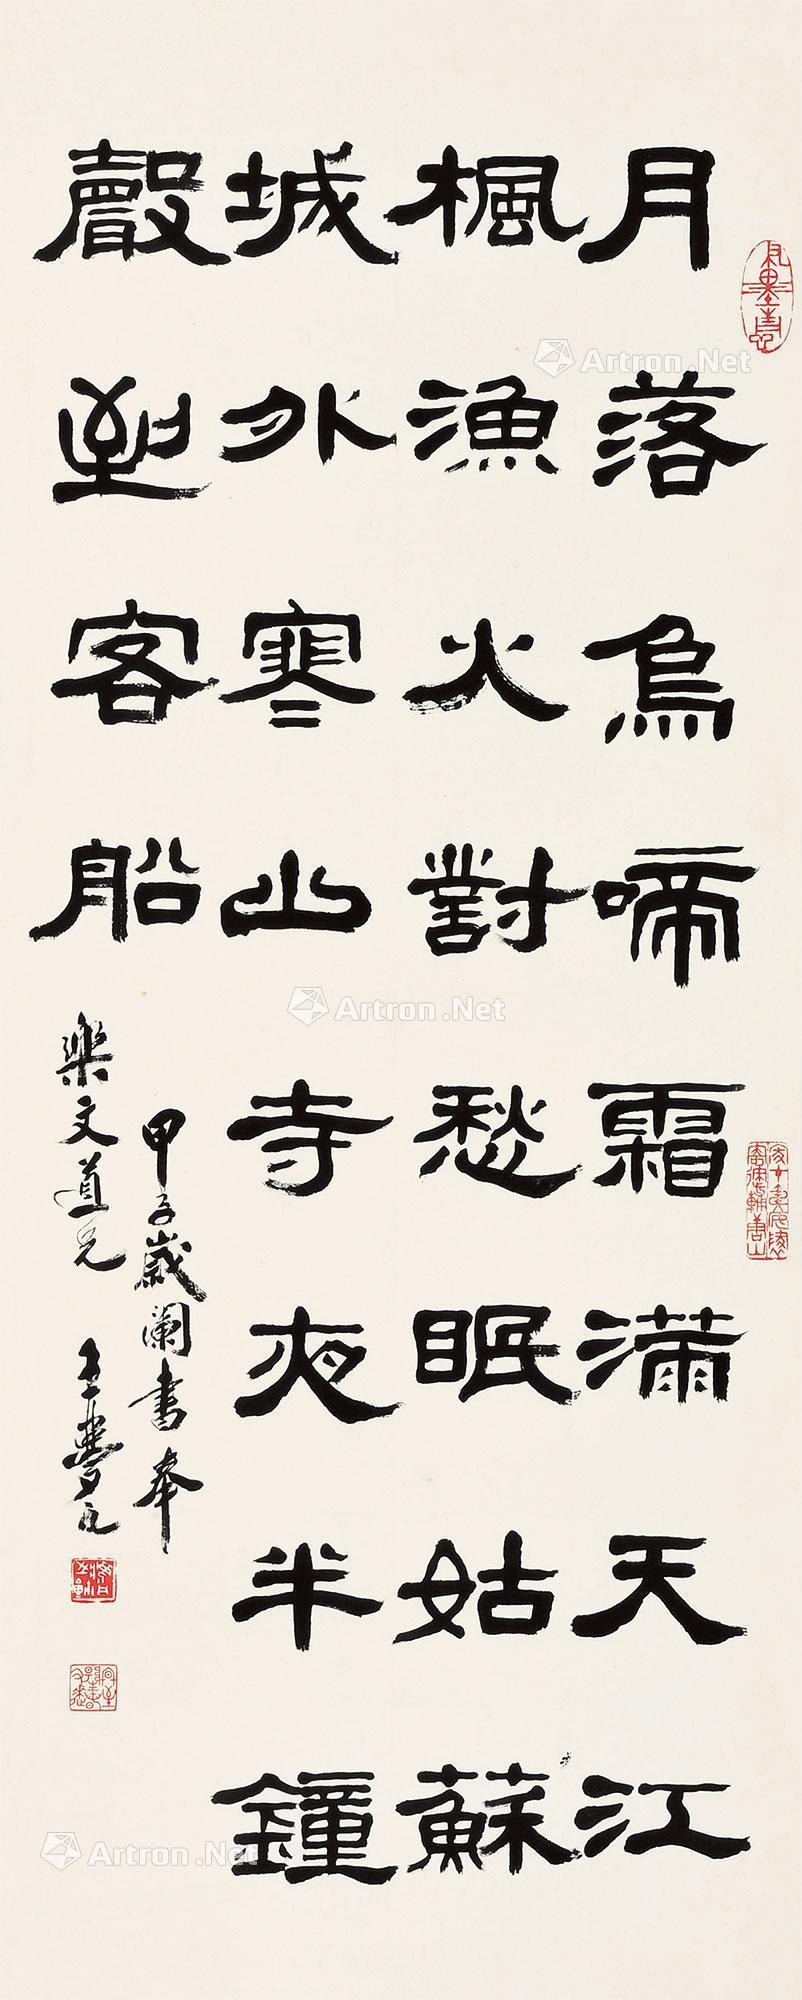 月落烏啼霜滿天江
楓漁火對愁眠姑蘇
城外寒山寺夜半鐘
聲到客船
甲子歲闌書奉
樂文道兄
Artron.Net
Artron.Net
Artron.Net